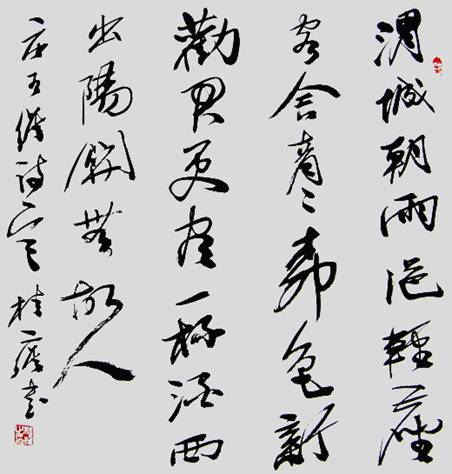 渭城朝雨浥輕塵
客舍青〻柳色新
勸君更盡一杯酒西
出陽關無故人
維詩 桂